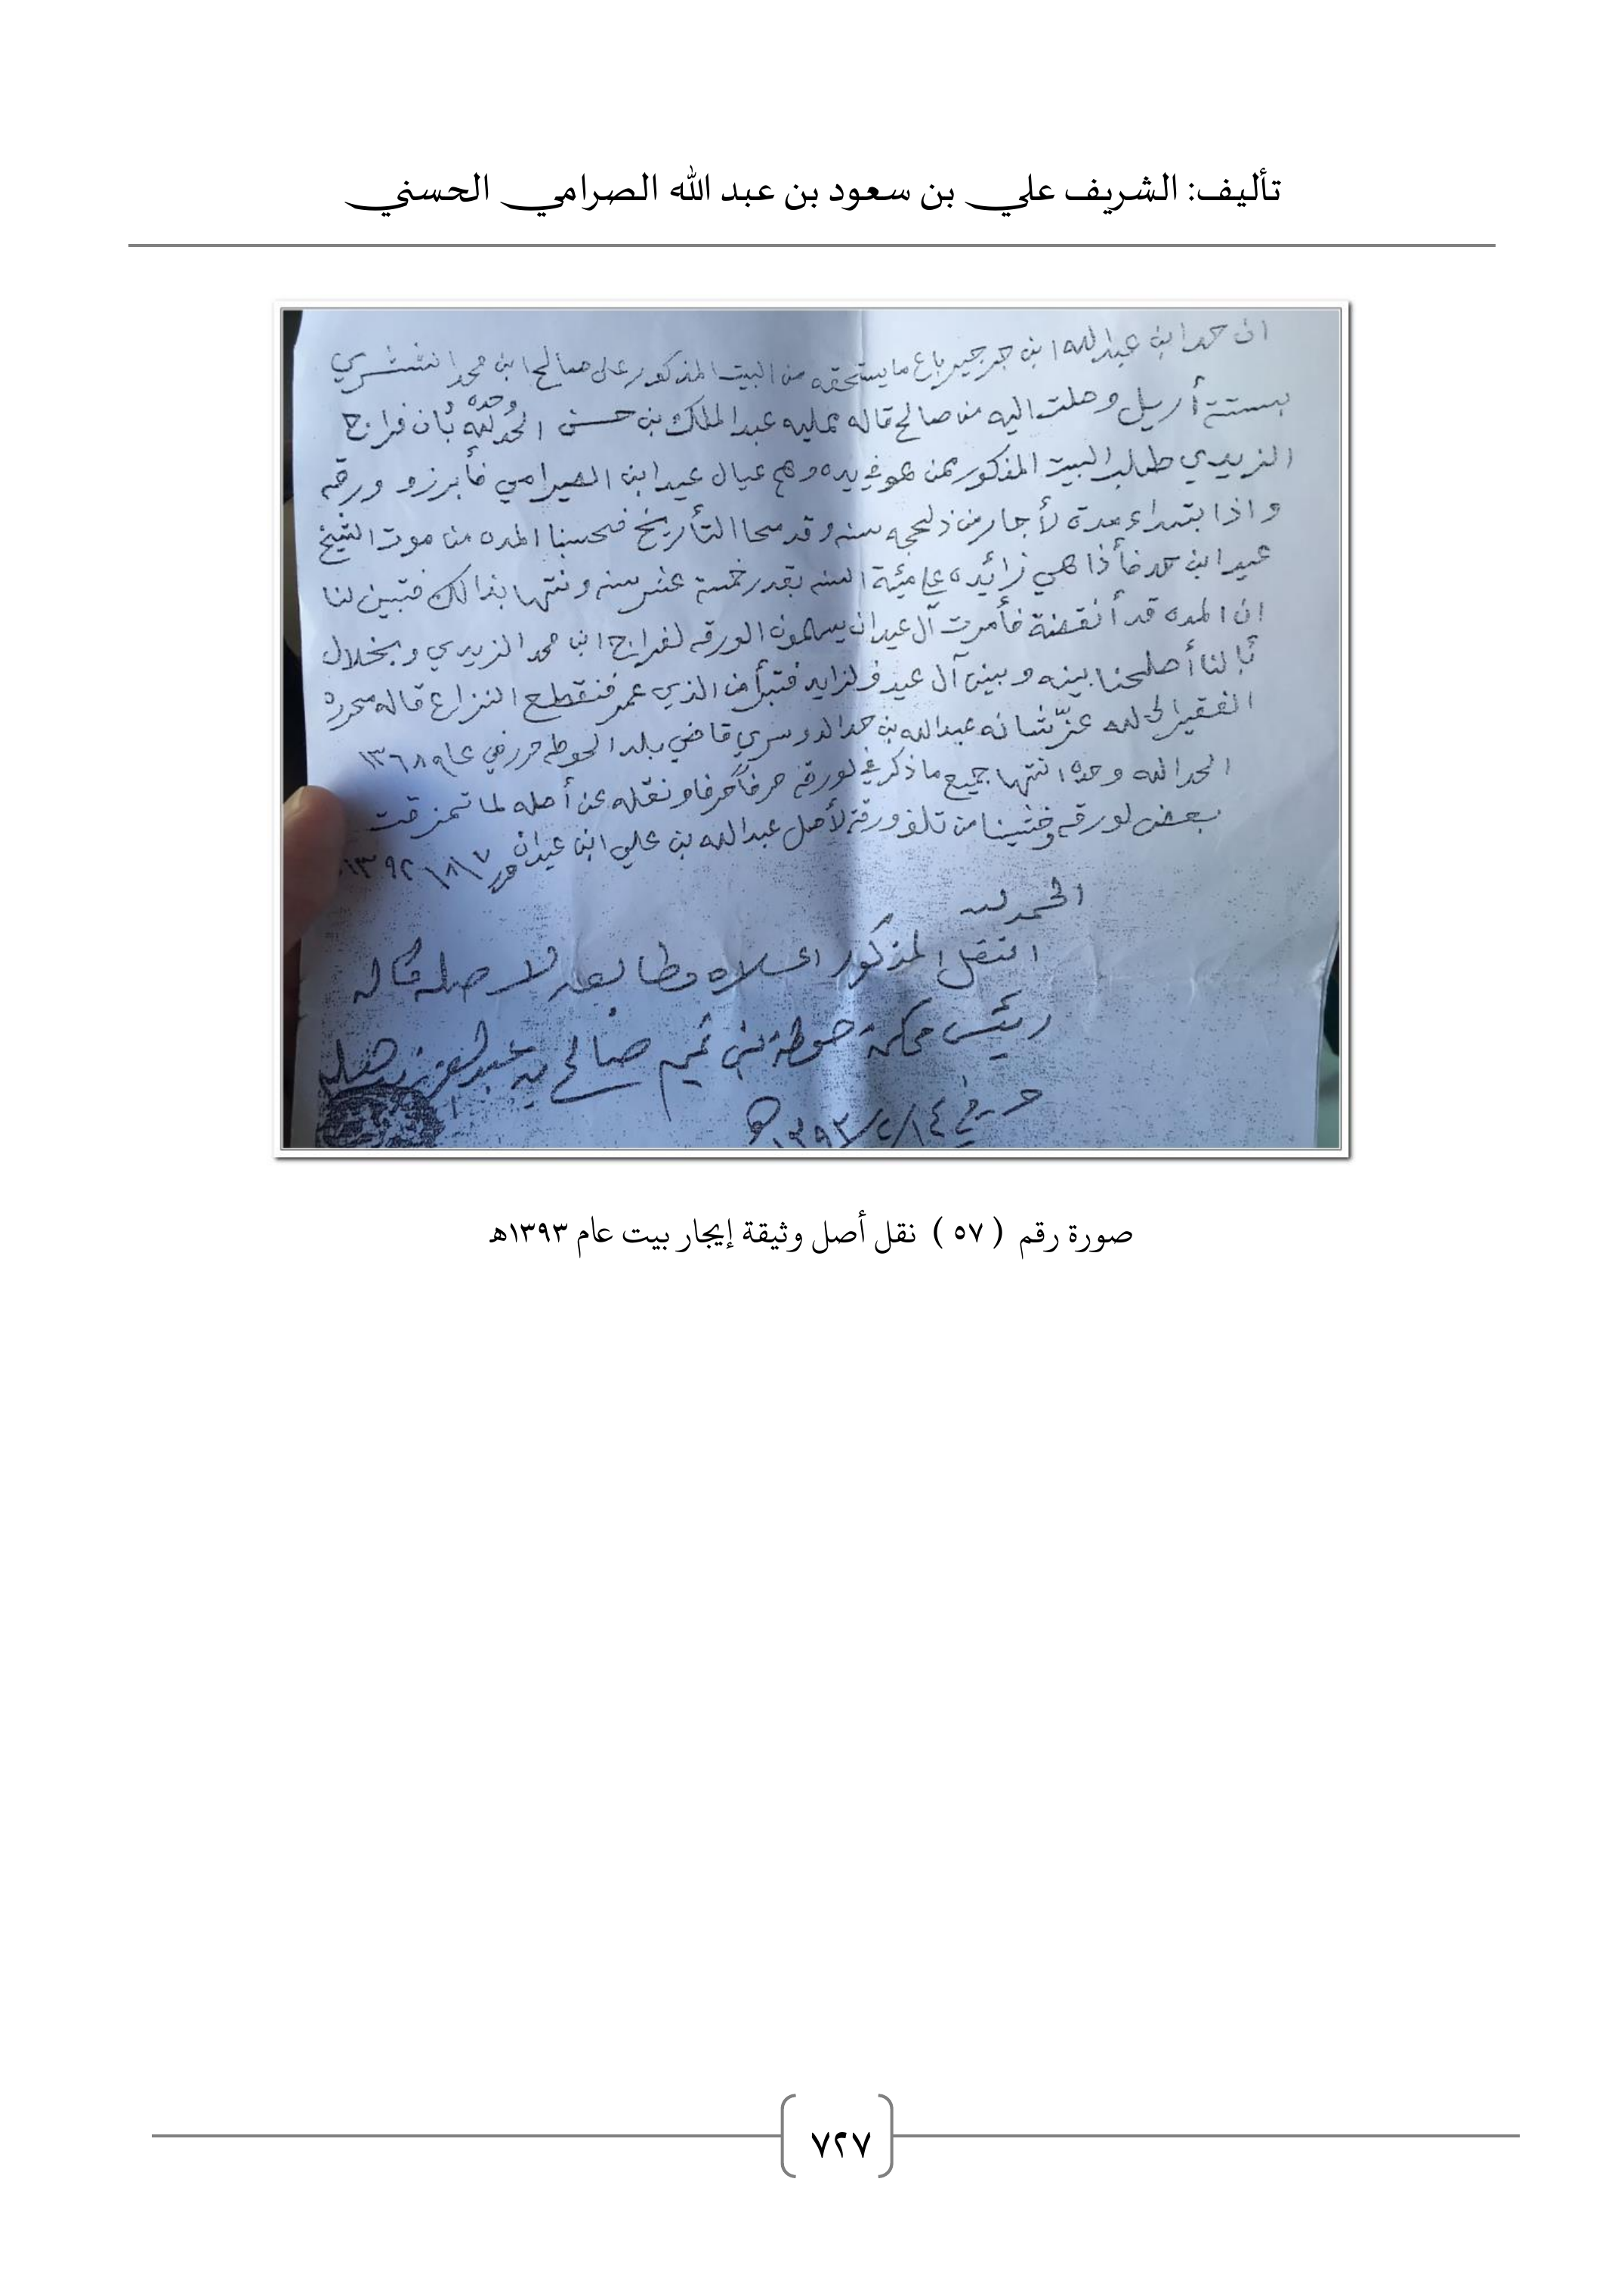 تأليف: الشريف علي بن سعود بن عبد الله الصرامي الحسني
ان حمد ابن عبدالله ابن جرجير باع ما يستحقه من البيت المذكور على صالح ابن محمد الشثري
بستتة أريل وصلت اليه من صالح قاله ممليه عبدالملك بن حسن الحمد لله وحده بأن فراج
الزييدي طلب البيت المذكور ممن هو في يده وهم عيال عيدا ابن الصيرامي فأبرزو ورقه
واذا بتداء مدة لأجار من ذلحجه سنه وقد محا التأريخ فحسبنا المده من موت الشيخ
عيدا ابن حمد فأذا هي زائيده على مئية السنه بقدر خمسة عشر سنه ونتها بذالك فتبين لنا
ان المده قد أنقضة فأمرت آل عيدان يسلمون الورقه لفراج ابن محمد الزيدي وبخلال
أصلحنا بينه وبين آل عيد فلزايد فتبرأ من الذي عمر فنقطع النزاع قاله محرره
الفقير الى لله عز شانه عبدالله بن حمد الدوسري قاضي بلد الحوطه حرر في عام ١٣٦٨
الحمد الله وحده انتها جميع ما ذكر في لورقه حرفاً حرفا ونقله عن أصله لما تمزقت
بعض لورقه وخشينا من تلف ورقة لأصل عبدالله بن علي ابن عيدان حرر ١٣٩٢/٨/٧
الحمد لله
النقل المذكور اعلاه مطابعه لاصله قاله
رئيس محكمة حوطة بني تميم صالح بن عبدالعزيز
حرر في ١٣٩٣/٢/١٤ هـ
صورة رقم ( ٥٧ ) نقل أصل وثيقة إيجار بيت عام ١٣٩٣هـ
٧٢٧